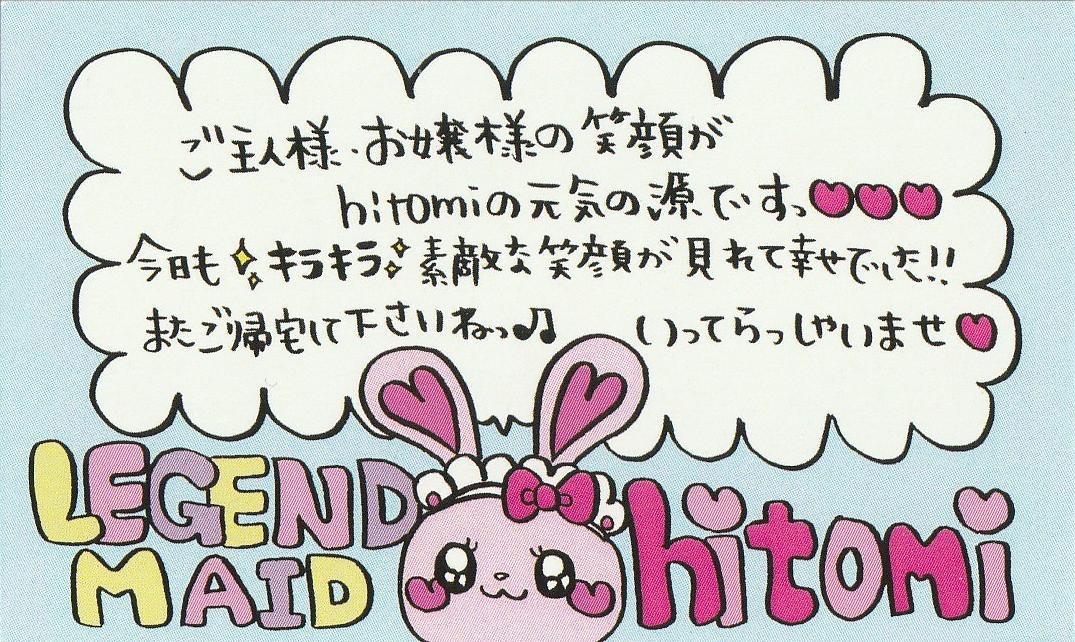 ご主人様・お嬢様の笑顔が
hitomiの元気の源ですっ♥♥♥
今日も✨キラキラ✨素敵な笑顔が見れて幸せでした!!
またご帰宅して下さいねっ♫ いってらっしゃいませ♥
LEGEND
MAID
hitomi